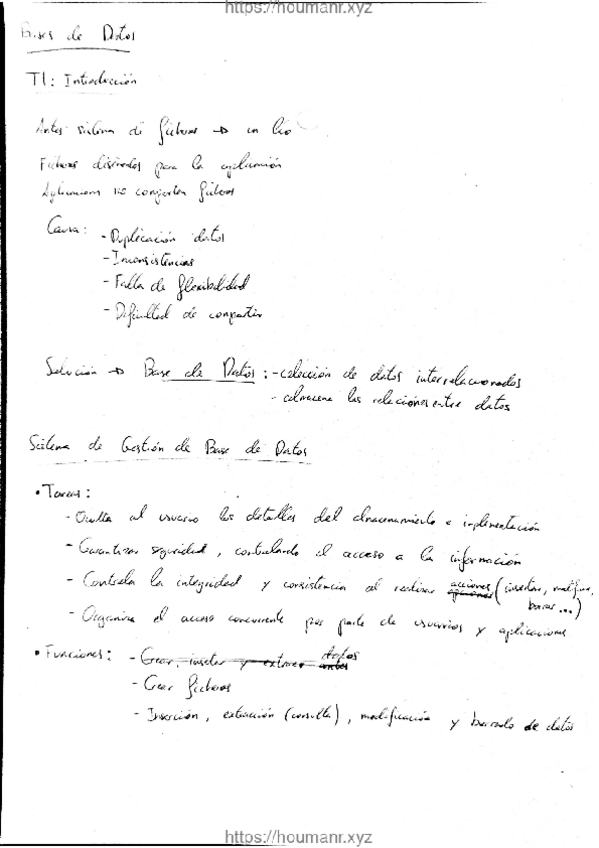 https://houmanr.xyz
Bases de Datos
T1: Introducción
Antes sistema de ficheros → un lío
Ficheros diseñados para la aplicación
Aplicaciones no comparten ficheros
Causa:
- Duplicación datos
- Inconsistencias
- Falta de flexibilidad
- Dificultad de compartir
Solución → Base de Datos: - colección de datos interrelacionados
- almacena las relaciones entre datos
Sistema de Gestión de Base de Datos
• Tareas:
- Oculta al usuario los detalles del almacenamiento e implementación
- Garantizar seguridad, controlando el acceso a la información
- Controla la integridad y consistencia al realizar acciones (insertar, modificar,
borrar ...)
- Organiza el acceso concurrente por parte de usuarios y aplicaciones
• Funciones: - Crear, insertar y extraer datos
- Crear ficheros
- Inserción, extracción (consulta), modificación y borrado de datos
https://houmanr.xyz